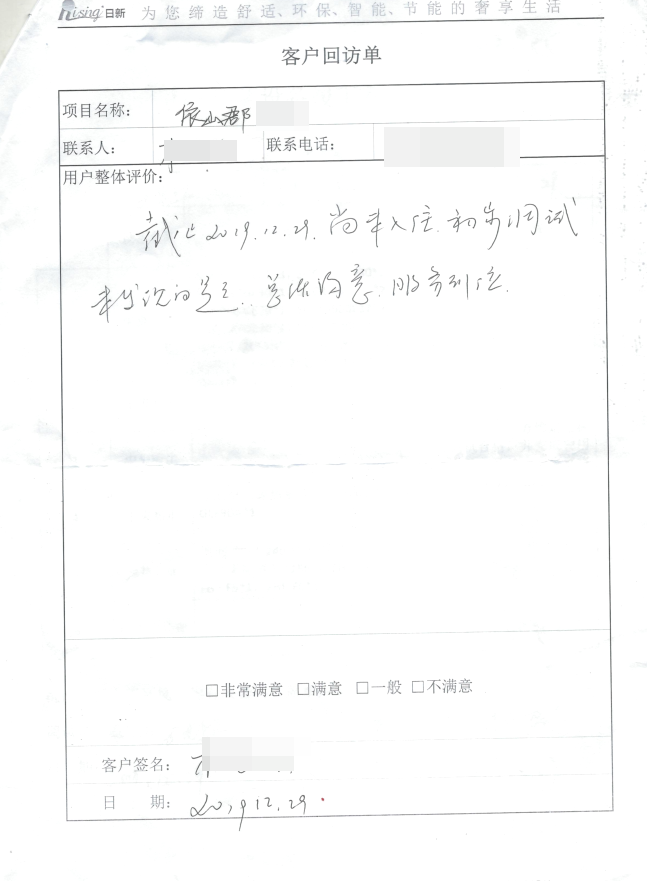 Rising 日新 为您缔造舒适、环保、智能、节能的奢享生活
客户回访单
项目名称： 依山郡
联系人： 联系电话：
用户整体评价：
截止2019.12.29.尚未入住.初步调试
未发现问题.总体满意.服务到位.
□非常满意 □满意 □一般 □不满意
客户签名：
日 期： 2019.12.29